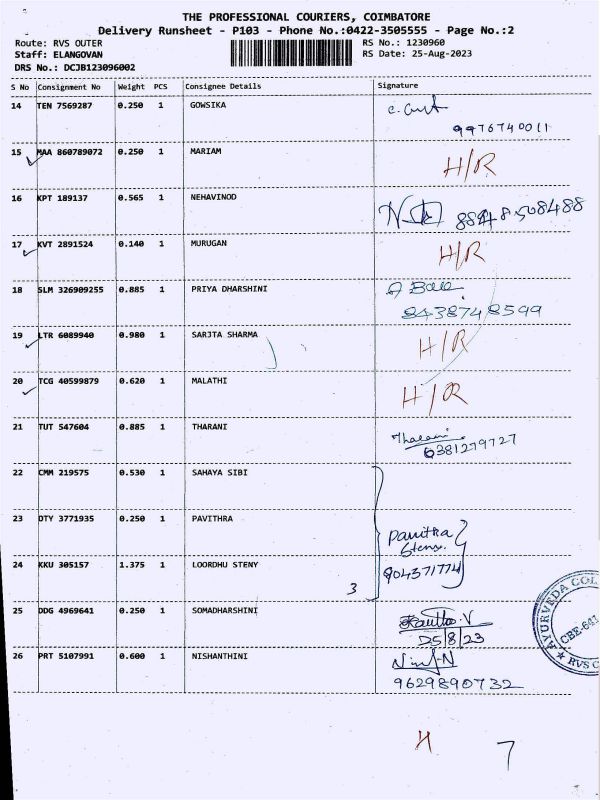 THE PROFESSIONAL COURIERS, COIMBATORE
Delivery Runsheet - P103 - Phone No.:0422-3505555 - Page No.:2
Route: RVS OUTER RS No.: 1230960
Staff: ELANGOVAN RS Date: 25-Aug-2023
DRS No.: DCJB123096002
S No Consignment No Weight PCS Consignee Details Signature
14 TEN 7569287 0.250 1 GOWSIKA
9976740011
15 MAA 860789072 0.250 1 MARIAM H/R
16 KPT 189137 0.565 1 NEHAVINOD
17 KVT 2891524 0.140 1 MURUGAN H/R
18 SLM 326909255 0.885 1 PRIYA DHARSHINI
8438748599
19 LTR 6089940 0.980 1 SARJTA SHARMA H/R
20 TCG 40599879 0.620 1 MALATHI H/R
21 TUT 547604 0.885 1 THARANI Tharani
6381279727
22 CMM 219575 0.530 1 SAHAYA SIBI
23 OTY 3771935 0.250 1 PAVITHRA Pavitra
Steny
24 KKU 305157 1.375 1 LOORDHU STENY 904371774
3
25 DDG 4969641 0.250 1 SOMADHARSHINI
25/8/23
26 PRT 5107991 0.600 1 NISHANTHINI
9629890732
AYURVEDA COL
CBE-641
RVS C
H 7